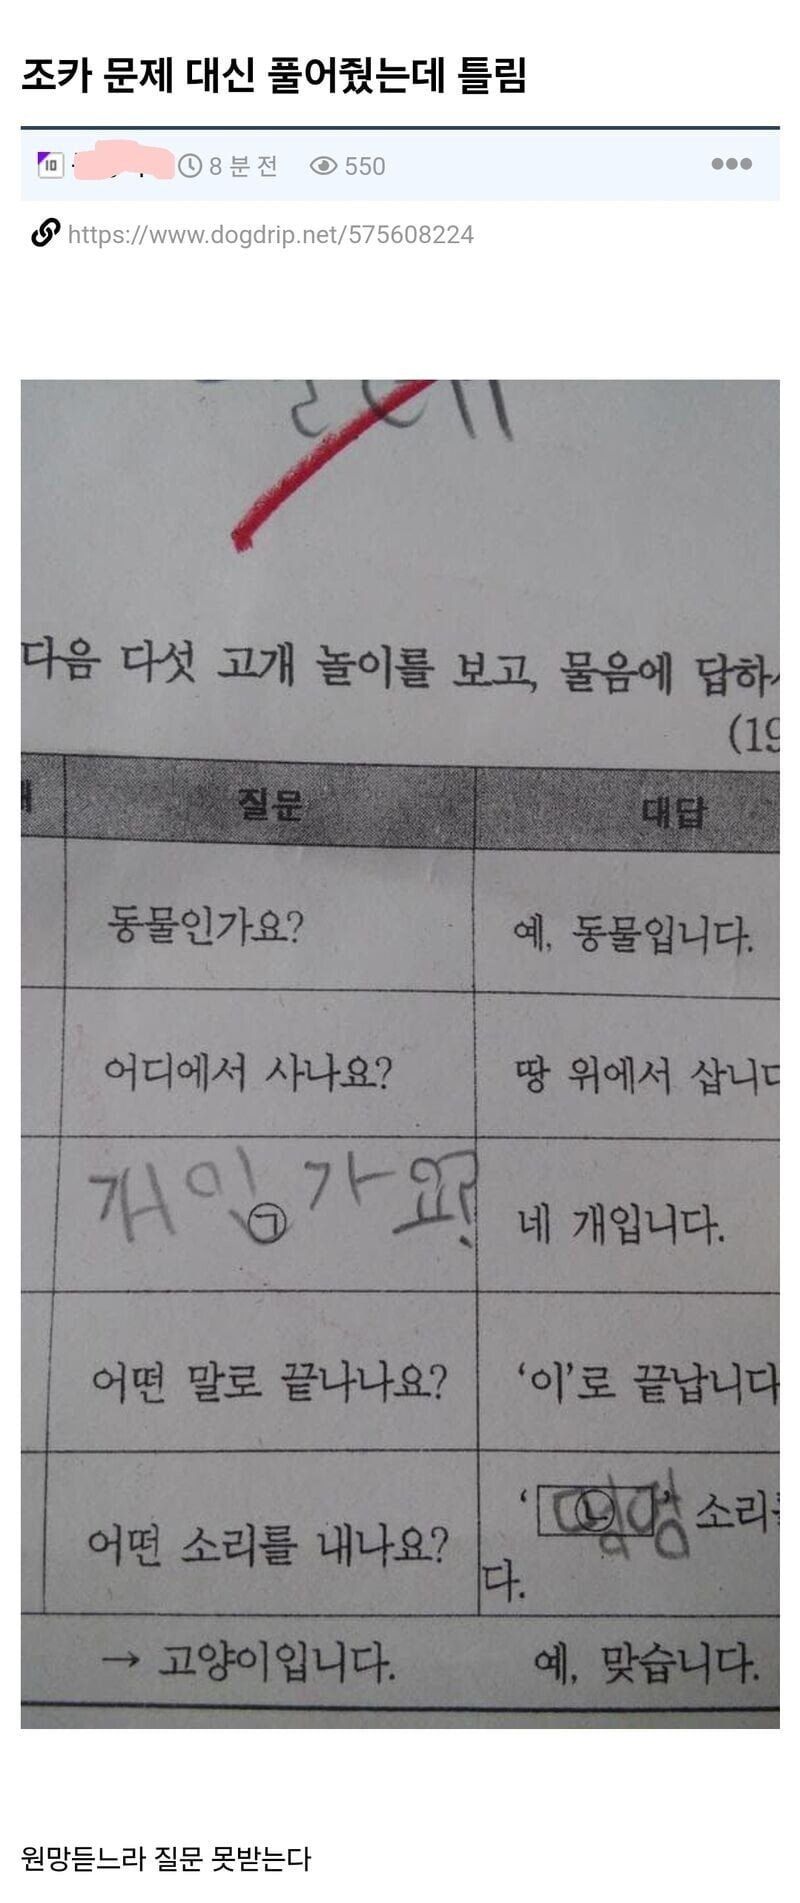 조카 문제 대신 풀어줬는데 틀림
10
8 분 전 550
https://www.dogdrip.net/575608224
다음 다섯 고개 놀이를 보고, 물음에 답하
(19
질문 대답
동물인가요? 예, 동물입니다.
어디에서 사나요? 땅 위에서 삽니다
개인가요? ㉠ 네 개입니다.
어떤 말로 끝나나요? '이'로 끝납니다
어떤 소리를 내나요? '㉡ 멍멍' 소리를
다.
→ 고양이입니다. 예, 맞습니다.
원망듣느라 질문 못받는다